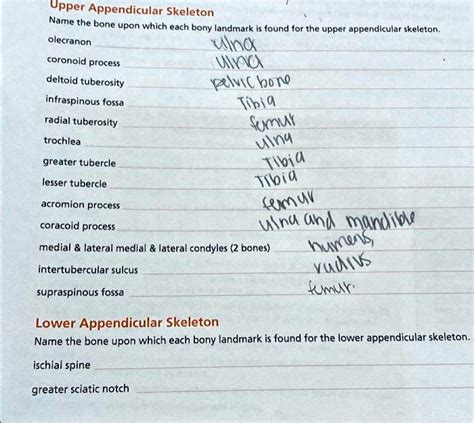 Upper Appendicular Skeleton
Name the bone upon which each bony landmark is found for the upper appendicular skeleton.
olecranon ulna
coronoid process ulna
deltoid tuberosity pelvic bone
infraspinous fossa Tibia
radial tuberosity femur
trochlea ulna
greater tubercle Tibia
lesser tubercle Tibia
acromion process femur
coracoid process ulna and mandible
medial & lateral medial & lateral condyles (2 bones) humerus,
intertubercular sulcus radius
supraspinous fossa femur.
Lower Appendicular Skeleton
Name the bone upon which each bony landmark is found for the lower appendicular skeleton.
ischial spine
greater sciatic notch